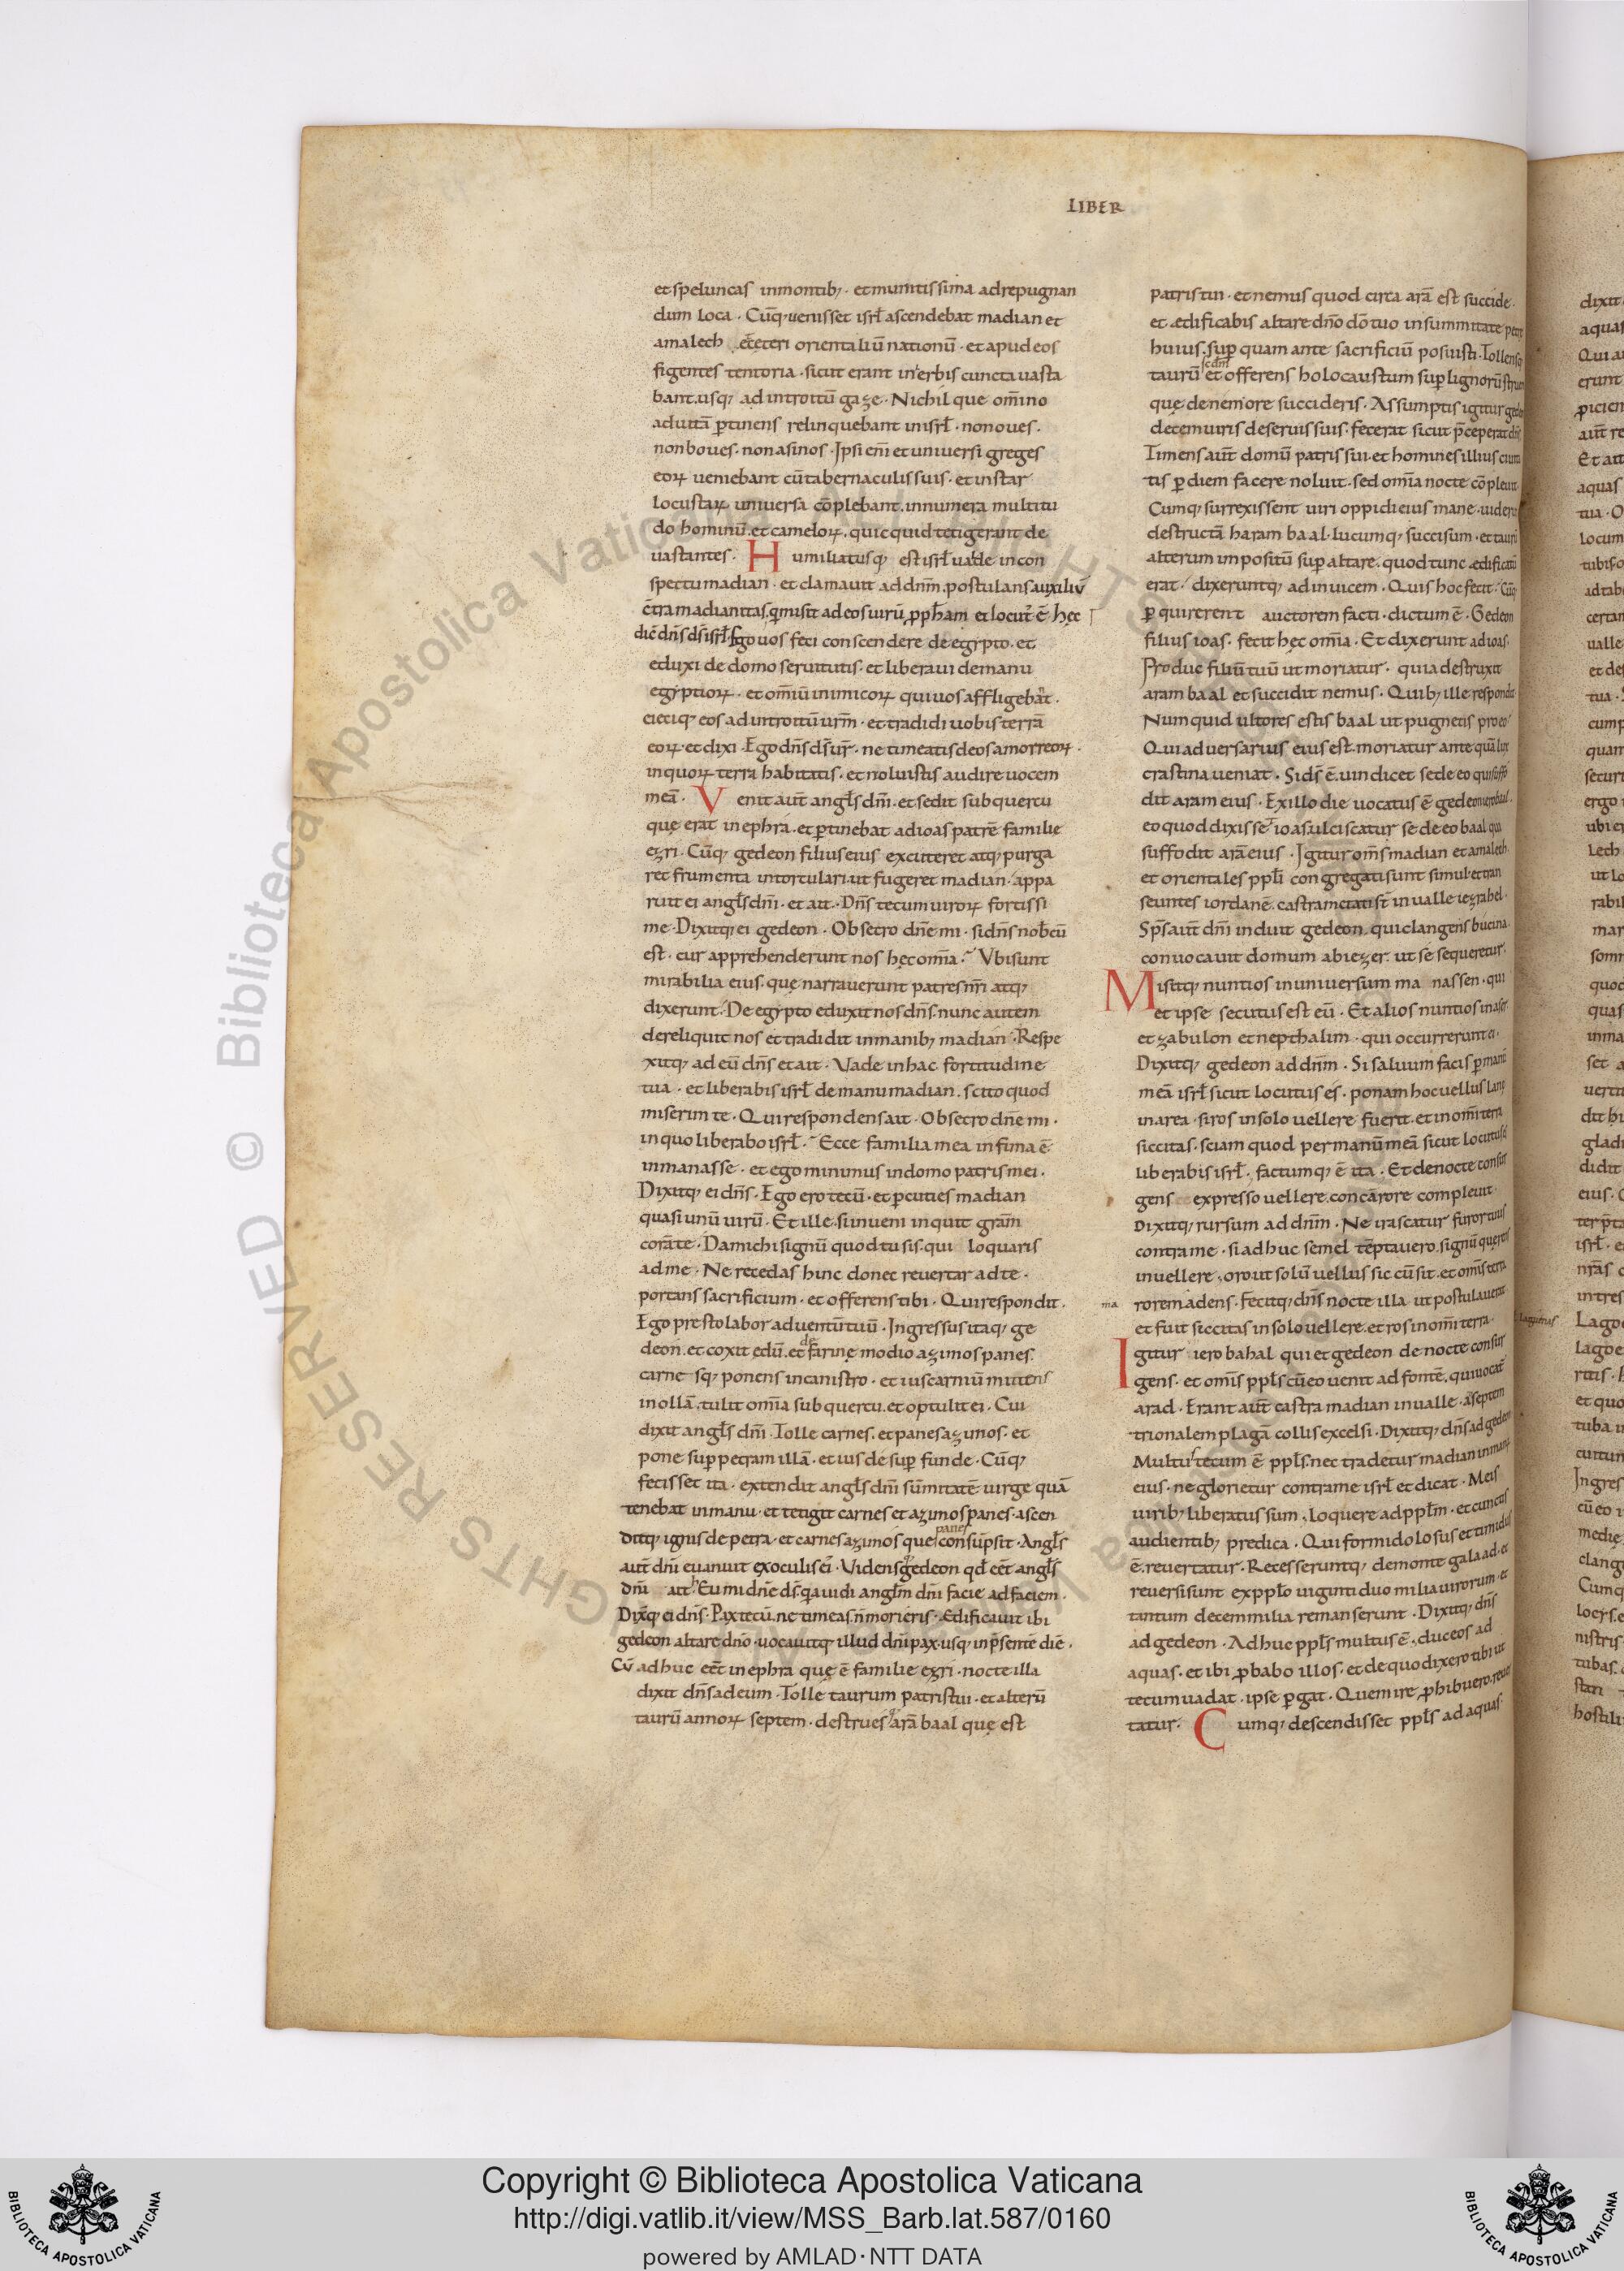 LIBER
et speluncas inmontibꝫ · et munitissima adrepugnan
dum loca · Cūq; uenisset isrł ascendebat madian et
amalech ceteri orientaliū nationū · et apud eos
figentes tentoria · sicut erant in erbis cuncta uasta
bant usq; ad introitū gaze · Nichil que om̄ino
aduitā ꝑtinens relinquebant in isrł · non oues ·
non boues · non asinos · Ipsi eni̅ et uniuersi greges
eoꝝ ueniebant cū tabernaculis suis · et instar
locustaꝝ uniuersa cōplebant . innumera multitu
do hominū . et cameloꝝ . quicquid tetigerant de
uastantes · Humiliatusq; est isrł ualde in con
spectu madian · et clamauit ad dn̄m . postulans auxiliū
c̄tra madianitas . q̄ misit ad eos uirū ꝓpħam et locut᷒ ē hęc
dic̄ dn̄s ds̄ isrł Ego uos feci conscendere de egypto . et
eduxi de domo seruitutis · et liberaui de manu
egyptioꝝ · et om̄iū inimicoꝝ qui uos affligebāt ·
eieciq; eos ad introitū ur̄m · et tradidi uobis terrā
eoꝝ · et dixi · Ego dn̄s ds̄ ur̄ · ne timeatis deos amorreoꝝ ·
in quoꝝ terra habitatis · et noluistis audire uocem
meā · Venit aut̄ angl̄s dn̄i · et sedit sub quercu
quę erat in ephra · et ꝑtinebat ad ioas patrē familię
ezri · Cūq; gedeon filius eius excuteret atq; purga
ret frumenta in torculari ut fugeret madian · appa
ruit ei angl̄s dn̄i · et ait · Dn̄s tecum uiroꝝ fortissi
me · Dixitq; ei gedeon · Obsecro dn̄e mi · si dn̄s nobcū
est · cur apprehenderunt nos hęc om̄ia · Vbi sunt
mirabilia eius . quę narrauerunt patres nr̄i atq;
dixerunt · De egypto eduxit nos dn̄s . nunc autem
dereliquit nos et tradidit in manibꝫ madian · Respe
xitq; ad eū dn̄s et ait · Vade in hac fortitudine
tua · et liberabis isrł de manu madian . scito quod
miserim te · Qui respondens ait · Obsecro dn̄e mi ·
in quo liberabo isrł · Ecce familia mea infima ē
in manasse · et ego minimus in domo patris mei ·
Dixitq; ei dn̄s · Ego ero tecū · et ꝑcuties madian
quasi unū uirū · Et ille . si inueni inquit grām
corā te · Da michi signū quod tu sis . qui loquaris
ad me · Ne recedas hinc donec reuertar ad te ·
portans sacrificium · et offerens tibi · Qui respondit ·
Ego prestolabor aduentū tuū · Ingressus itaq; ge
deon . et coxit edū . et de farinę modio azimos panes .
carne sq; ponens in canistro · et ius carniū mittens
in ollā . tulit om̄ia sub quercu . et optulit ei · Cui
dixit angl̄s dn̄i · Tolle carnes . et panes azimos · et
pone suꝑ petram illā · et ius desuꝑ funde · Cūq;
fecisset ita · extendit angl̄s dn̄i sūmitatē uirge quā
tenebat in manu · et tetigit carnes et azimos panes · ascen
ditq; ignis de petra · et carnes azimosque panes consūpsit · Angl̄s
aut̄ dn̄i euanuit ex oculis ei᷒ · Vidensq; gedeon qd̄ eēt angl̄s
dn̄i ait · Eu mi dn̄e ds̄ . q̄a uidi angl̄m dn̄i facie ad faciem ·
Dix̄q; ei dn̄s · Pax tecū . ne timeas . n̄ morieris · Ædificauit ibi
gedeon altare dn̄o · uocauitq; illud dn̄i pax . usq; in p̄sentē diē ·
Cū adhuc eēt in ephra quę ē familie ezri · nocte illa
dixit dn̄s ad eum · Tolle taurum patris tui · et alterū
taurū annoꝝ septem · destruesq; arā baal quę est
patris tui · et nemus quod circa arā est succide ·
et ædificabis altare dn̄o dō tuo in summitate petrę
huius . suꝑ quam ante sacrificiū posuisti · Tollensq;
taurū scdm̄ et offerens holocaustum suꝑ lignorū strue
quę de nemore succideris · Assumptis igitur gedeon
decem uiris de seruis suis . fecerat sicut p̄ceperat dn̄s
Timens aut̄ domū patris sui · et homines illius ciuita
tis ꝑ diem facere noluit . sed om̄ia nocte cōpleuit ·
Cumq; surrexissent uiri oppidi eius mane · uideru
destructā haram baal · lucumq; succisum · et taurū
alterum impositū suꝑ altare . quod tunc ædificatū
erat · dixeruntq; ad inuicem · Quis hoc fecit · Cūq;
ꝑquirerent auctorem facti · dictum ē · Gedeon
filius ioas · fecit hęc om̄ia · Et dixerunt ad ioas ·
Produc filiū tuū ut moriatur · quia destruxit
aram baal et succidit nemus · Quibꝫ ille respondit
Numquid ultores estis baal ut pugnetis pro eo
Qui aduersarius eius est . moriatur antequā lux
crastina ueniat · Si ds̄ ē . uindicet se de eo qui suffo
dit aram eius · Ex illo die uocatus ē gedeon ierobaal ·
eo quod dixisset ioas ulciscatur se de eo baal qui
suffodit arā eius · Igitur om̄s madian et amalech
et orientales ppl̄i congregati sunt simul · et tran
seuntes iordanē . castrametati st̄ in ualle iezrahel ·
Sp̄s aut̄ dn̄i induit gedeon . qui clangens bucina
conuocauit domum abiezer . ut se sequeretur ·
Misitq; nuntios in uniuersum ma nassen · qui
et ipse secutus est eū · Et alios nuntios in aser
et zabulon et nepthalim · qui occurrerunt ei ·
Dixitq; gedeon ad dn̄m · Si saluum facis ꝑ manū
meā isrł sicut locutus es . ponam hoc uellus lanę
in area · si ros in solo uellere fuerit . et in om̄i terra
siccitas . sciam quod per manū meā sicut locutus ē
liberabis isrł . factumq; ē ita · Et de nocte consur
gens expresso uellere . concā rore compleuit ·
Dixitq; rursum ad dn̄m · Ne irascatur furor tuus
contra me · si adhuc semel tēptauero . signū querens
in uellere . oro ut solū uellus siccū sit . et om̄is terra
ma
rore madens · Fecitq; dn̄s nocte illa ut postulauerat
et fuit siccitas in solo uellere . et ros in om̄i terra ·
Igitur ierobahal qui et gedeon de nocte consur
gens · et om̄is ppl̄s cū eo uenit ad fontē . qui uocat᷒
arad · Erant aut̄ castra madian in ualle · a septem
trionalem plagā collis excelsi · Dixitq; dn̄s ad gedeon
Mult᷒ tecum ē ppl̄s . nec tradetur madian in manꝰ
eius · ne glorietur contra me isrł et dicat · Meis
uiribꝫ liberatus sum . loquere ad ppl̄m · et cunctis
audientibꝫ predica · Qui formidolosus et timidus
ē . reuertatur · Recesseruntq; de monte galaad . et
reuersi sunt ex ppl̄o uiginti duo milia uirorum · et
tantum decem milia remanserunt · Dixitq; dn̄s
ad gedeon · Adhuc ppl̄s multus ē . duc eos ad
aquas · et ibi ꝓbabo illos · et de quo dixero tibi ut
tecum uadat · ipse ꝑgat · Quem ire ꝓhibuero . reuer
tatur · Cumq; descendisset ppl̄s ad aquas
Copyright © Biblioteca Apostolica Vaticana
http://digi.vatlib.it/view/MSS_Barb.lat.587/0160
powered by AMLAD·NTT DATA
BIBLIOTECA APOSTOLICA VATICANA
BIBLIOTECA APOSTOLICA VATICANA